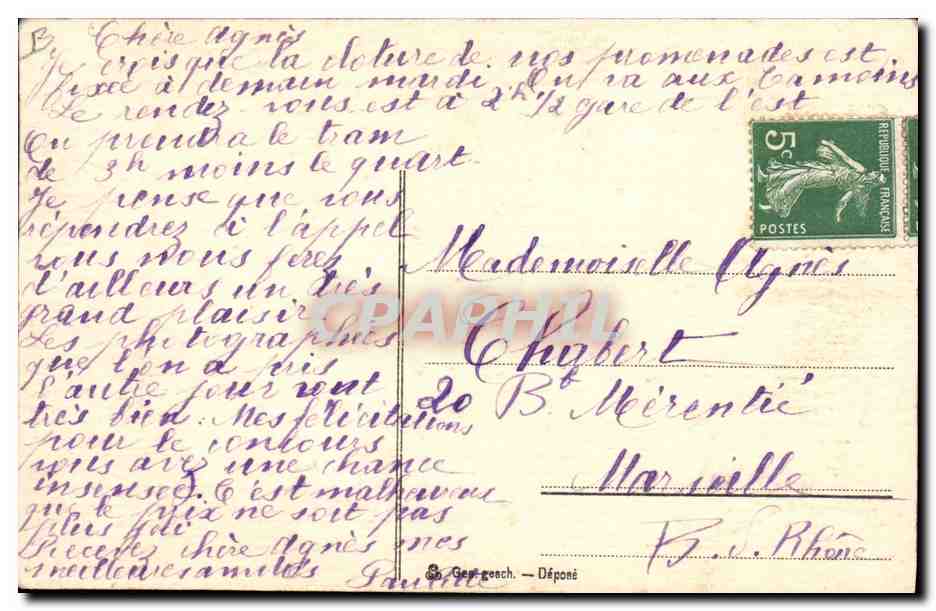 B.
Chère Agnès
Je crois que la cloture de nos promenades est
fixée à demain mardi. On va aux Camoins
Le rendez vous est à 2h 1/2 gare de l'est
On prendra le tram
de 3h moins le quart.
Je pense que vous
répendrez à l'appel
vous nous ferez
d'ailleurs un très
grand plaisir
Les photographies
que l'on a pris
l'autre jour sont
très bien. Mes félicitations
pour le concours
vous avez une chance
insensée. C'est malheureux
que le prix ne soit pas
plus joli
Recevez chère Agnès mes
meilleures amitiés Paulette
REPUBLIQUE FRANÇAISE
5c
POSTES
Mademoiselle Agnès
Chabert
20 Bt Mérentié
Marseille
B. d. Rhône
CPAPHIL
Ges. gesch. — Déposé